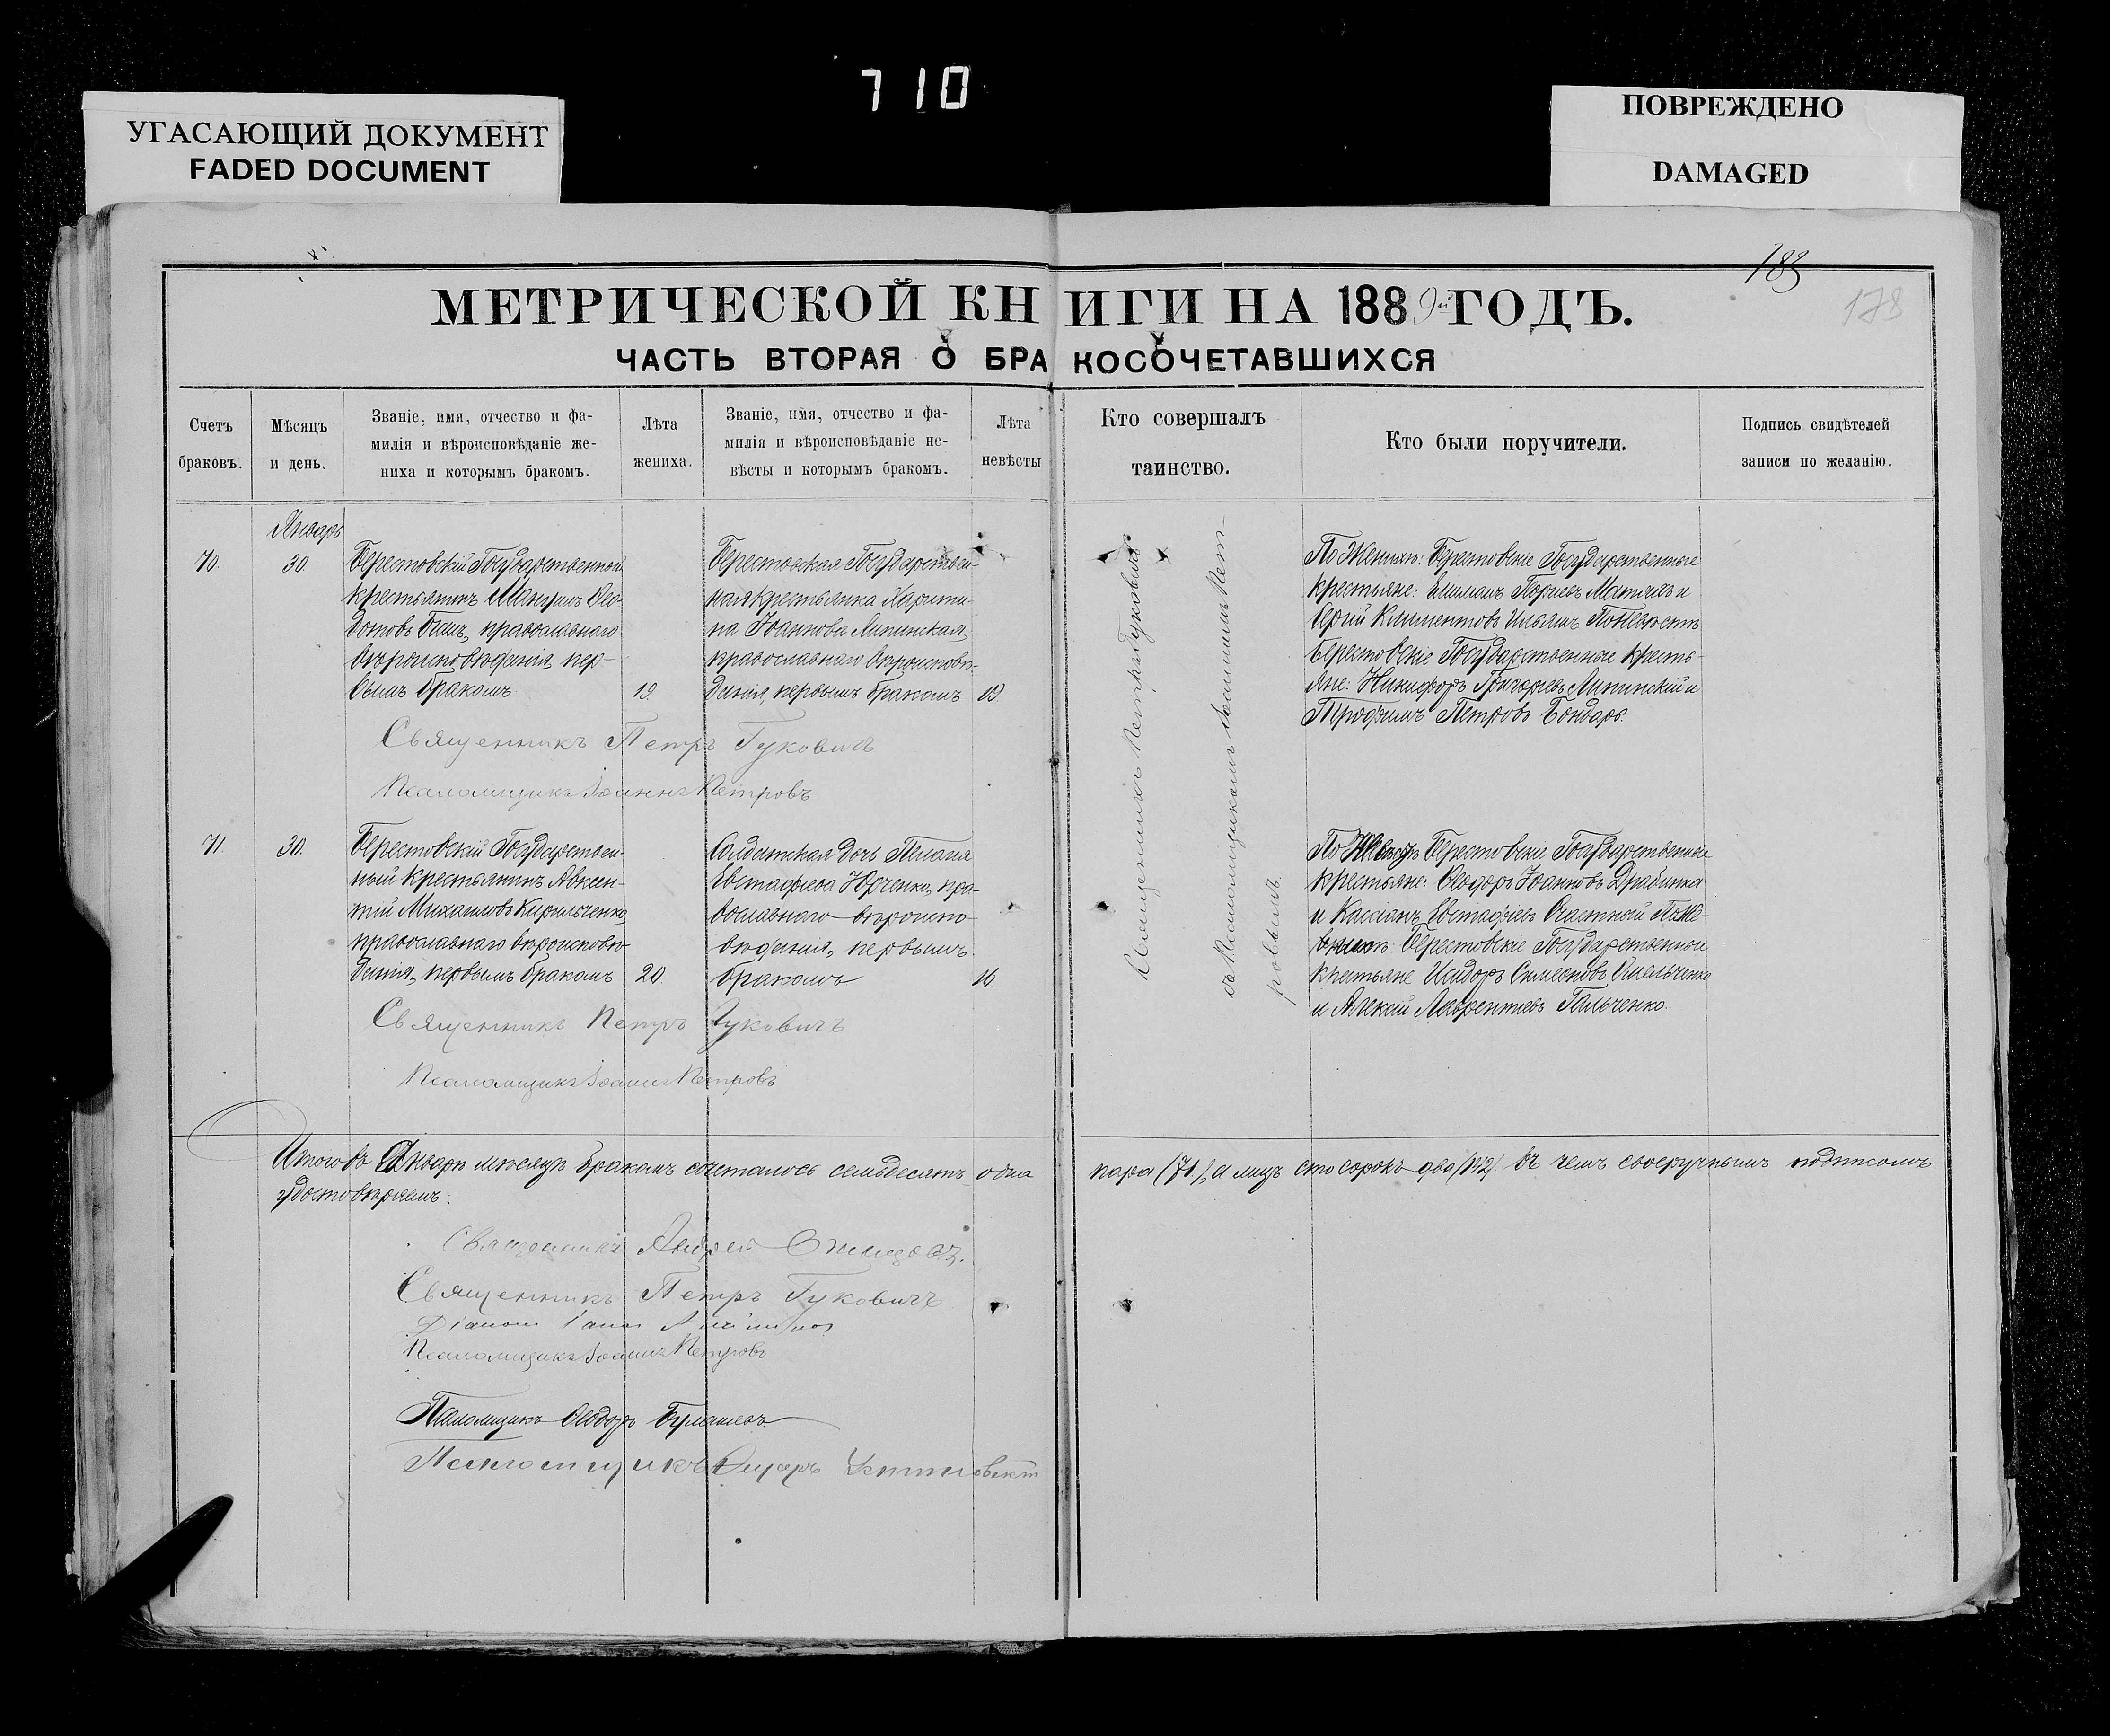 710
УГАСАЮЩИЙ ДОКУМЕНТ
FADED DOCUMENT
ПОВРЕЖДЕНО
DAMAGED
183
178
МЕТРИЧЕСКОЙ КНИГИ НА 1889й ГОДЪ.
ЧАСТЬ ВТОРАЯ О БРАКОСОЧЕТАВШИХСЯ
Счетъ браковъ.
Мѣсяцъ и день.
Званіе, имя, отчество и фа-
милія и вѣроисповѣданіе же-
ниха и которымъ бракомъ.
Лѣта жениха.
Званіе, имя, отчество и фа-
милія и вѣроисповѣданіе не-
вѣсты и которымъ бракомъ.
Лѣта невѣсты
Кто совершалъ
таинство.
Кто были поручители.
Подпись свидѣтелей
записи по желанію.
Январь
70.
30.
Берестовскій Государственный
крестьянинъ Мануилъ Ѳео-
дотовъ православнаго
вѣроисповѣданія, пер-
вымъ бракомъ
19.
Берестовская Государствен-
ная крестьянка Харити-
на Іоаннова Липинская,
православнаго вѣроисповѣ-
данія, первымъ бракомъ
19.
Священникъ Петръ Гуковичъ
Псаломщикъ Іоаннъ Петровъ
Священникъ Петръ Гуковичъ
съ Псаломщикомъ Іоанномъ Пет-
ровымъ.
По Женихѣ: Берестовскіе Государственные
крестьяне: Емиліанъ и
Сергій Климентовъ Ильяшъ По Невѣстѣ
Берестовскіе Государственные кресть-
яне: Никифоръ Григорьевъ Липинскій и
Трофимъ Петровъ Бондарь.
71.
30.
Берестовскій Государствен-
ный крестьянинъ Авксен-
тій Михаиловъ Кирильченко,
православнаго вѣроисповѣ-
данія, первымъ бракомъ
20.
Солдатская дочь Пелагія
Евстафіева Юрченко, пра-
вославнаго вѣроиспо-
вѣданія, первымъ
бракомъ
16.
Священникъ Петръ Гуковичъ
Псаломщикъ Іоаннъ Петровъ
По Берестовскіе Государственные
крестьяне: Ѳеодоръ Іоанновъ Драбинка
и Кассіанъ Евстафіевъ Счастный По
Берестовскіе Государственные
крестьяне Исидоръ Симеоновъ Омельченко
и Алексій Лаврентіевъ Гальченко.
Итого въ Январѣ мѣсяцѣ бракомъ сочеталось семьдесятъ одна пара (71), а лицъ сто сорокъ два (142) въ чемъ своеручнымъ подписомъ
удостовѣряемъ:
Священникъ Андрей
Священникъ Петръ Гуковичъ
Псаломщикъ Іоаннъ Петровъ
Псаломщикъ Ѳеодоръ
Псаломщикъ